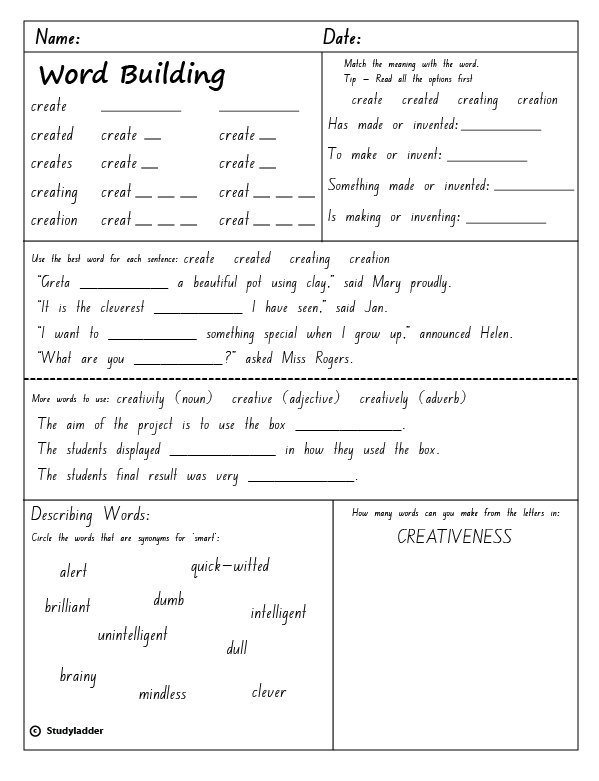 Name: Date:
Word Building
create ___________ ___________
created create __ create __
creates create __ create __
creating creat __ __ __ creat __ __ __
creation creat __ __ __ creat __ __ __
Match the meaning with the word.
Tip – Read all the options first
create created creating creation
Has made or invented: ___________
To make or invent: ___________
Something made or invented: ___________
Is making or inventing: ___________
Use the best word for each sentence: create created creating creation
"Greta ___________ a beautiful pot using clay," said Mary proudly.
"It is the cleverest ___________ I have seen," said Jan.
"I want to ___________ something special when I grow up," announced Helen.
"What are you ___________?" asked Miss Rogers.
More words to use: creativity (noun) creative (adjective) creatively (adverb)
The aim of the project is to use the box _____________.
The students displayed _____________ in how they used the box.
The students final result was very _____________.
Describing Words:
Circle the words that are synonyms for 'smart':
alert quick–witted
brilliant dumb intelligent
unintelligent dull
brainy mindless clever
© Studyladder
How many words can you make from the letters in:
CREATIVENESS